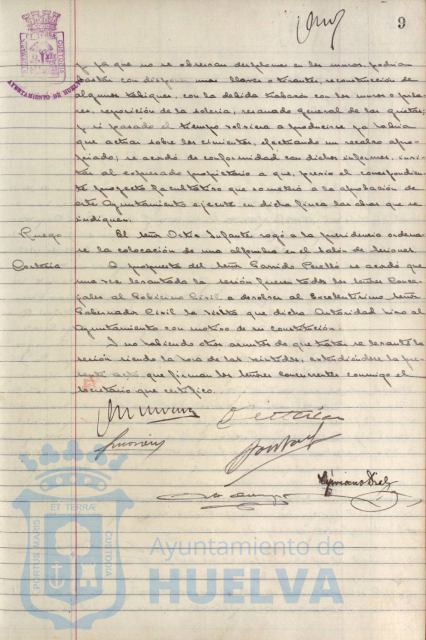 9
y ya que no se observan desplomes en los muros, podrían
bastar con disponer unas llaves o tirantes, reconstrucción de
algunos tabiques, con la debida trabazón con los muros o pila-
res, reposición de la solería, resanado general de las grietas;
y si pasado el tiempo volviera a producirse ya habría
que actuar sobre los cimientos, efectuando un recalzo apro-
piado; se acordó de conformidad con dichos informes, invi-
tar al expresado propietario a que, previo el correspondien-
te proyecto facultativo que someterá a la aprobación de
este Ayuntamiento ejecute en dicha finca las obras que se
indiquen.
Ruego El Señor Ortiz Infante rogó a la presidencia ordena-
se la colocación de una alfombra en el Salón de Sesiones.
Cortesía A propuesta del Señor Garrido Perelló se acordó que
una vez levantada la sesión fueran todos los Señores Conce-
jales al Gobierno Civil a devolver al Excelentísimo Señor
Gobernador Civil la visita que dicha Autoridad hizo al
Ayuntamiento con motivo de su constitución.
Y no habiendo otros asuntos de que tratar se levantó la
sesión siendo la hora de las veintidós, extendiéndose la pre-
sente acta que firman los Señores concurrentes conmigo el
Secretario que certifico.
Cipriano Diaz
PORTUS MARIS ET TERRAE CUSTODIA
Ayuntamiento de
HUELVA